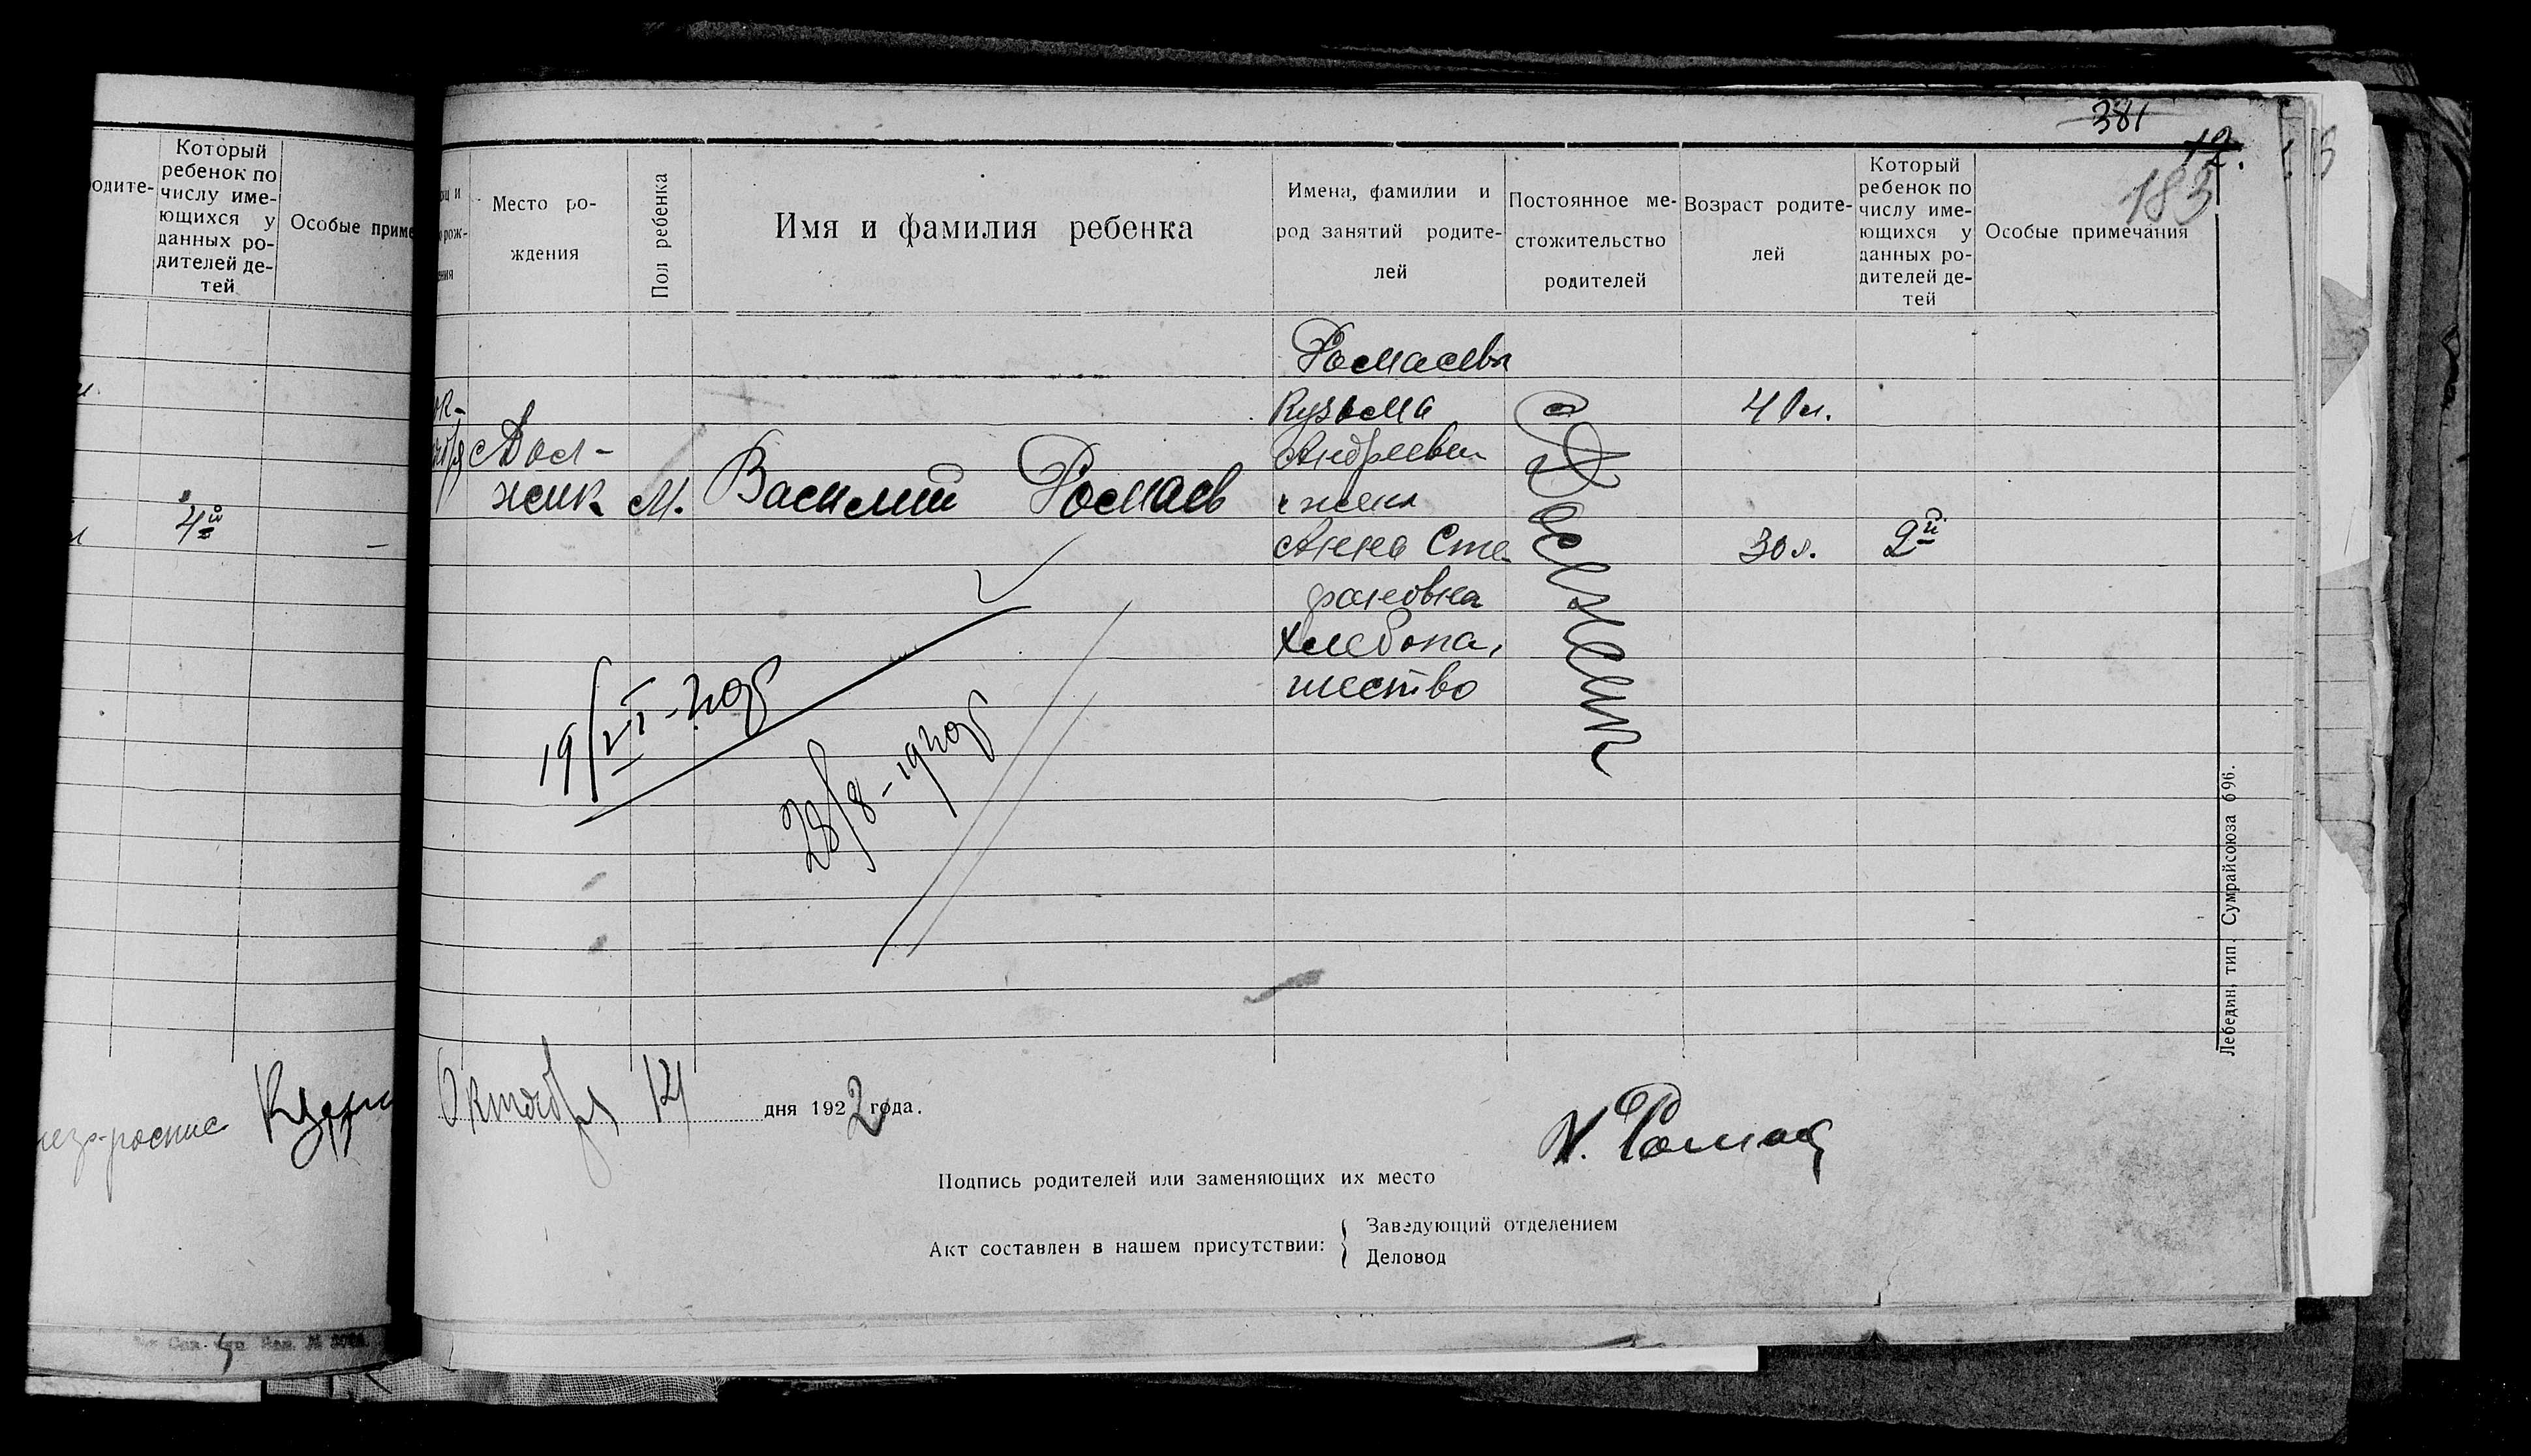 381
12.
183
одите-
Который
ребенок по
числу име-
ющихся у
данных ро-
дителей де-
тей
Особые приме
4й
Место ро-
ждения
Пол ребенка
Имя и фамилия ребенка
Имена, фамилии и
род занятий родите-
лей
Постоянное ме-
стожительство
родителей
Возраст родите-
лей
Который
ребенок по
числу име-
ющихся у
данных ро-
дителей де-
тей
Особые примечания
Ромаевы
Кузьма
Андреевич
и жена
Анна Сте
фановна
Хлебопа,
шество
ок-
тября
с Дол-
жик
М.
Василий Ромаев
с Должик
41 л.
30 л.
2й
19/VI-20г
28/8-19 20г
Октября 14 дня 1922 года.
Подпись родителей или заменяющих их место
К. Ромаев
Акт составлен в нашем присутствии:
Заведующий отделением
Деловод
Лебедин, тип. Сумрайсоюза 696.